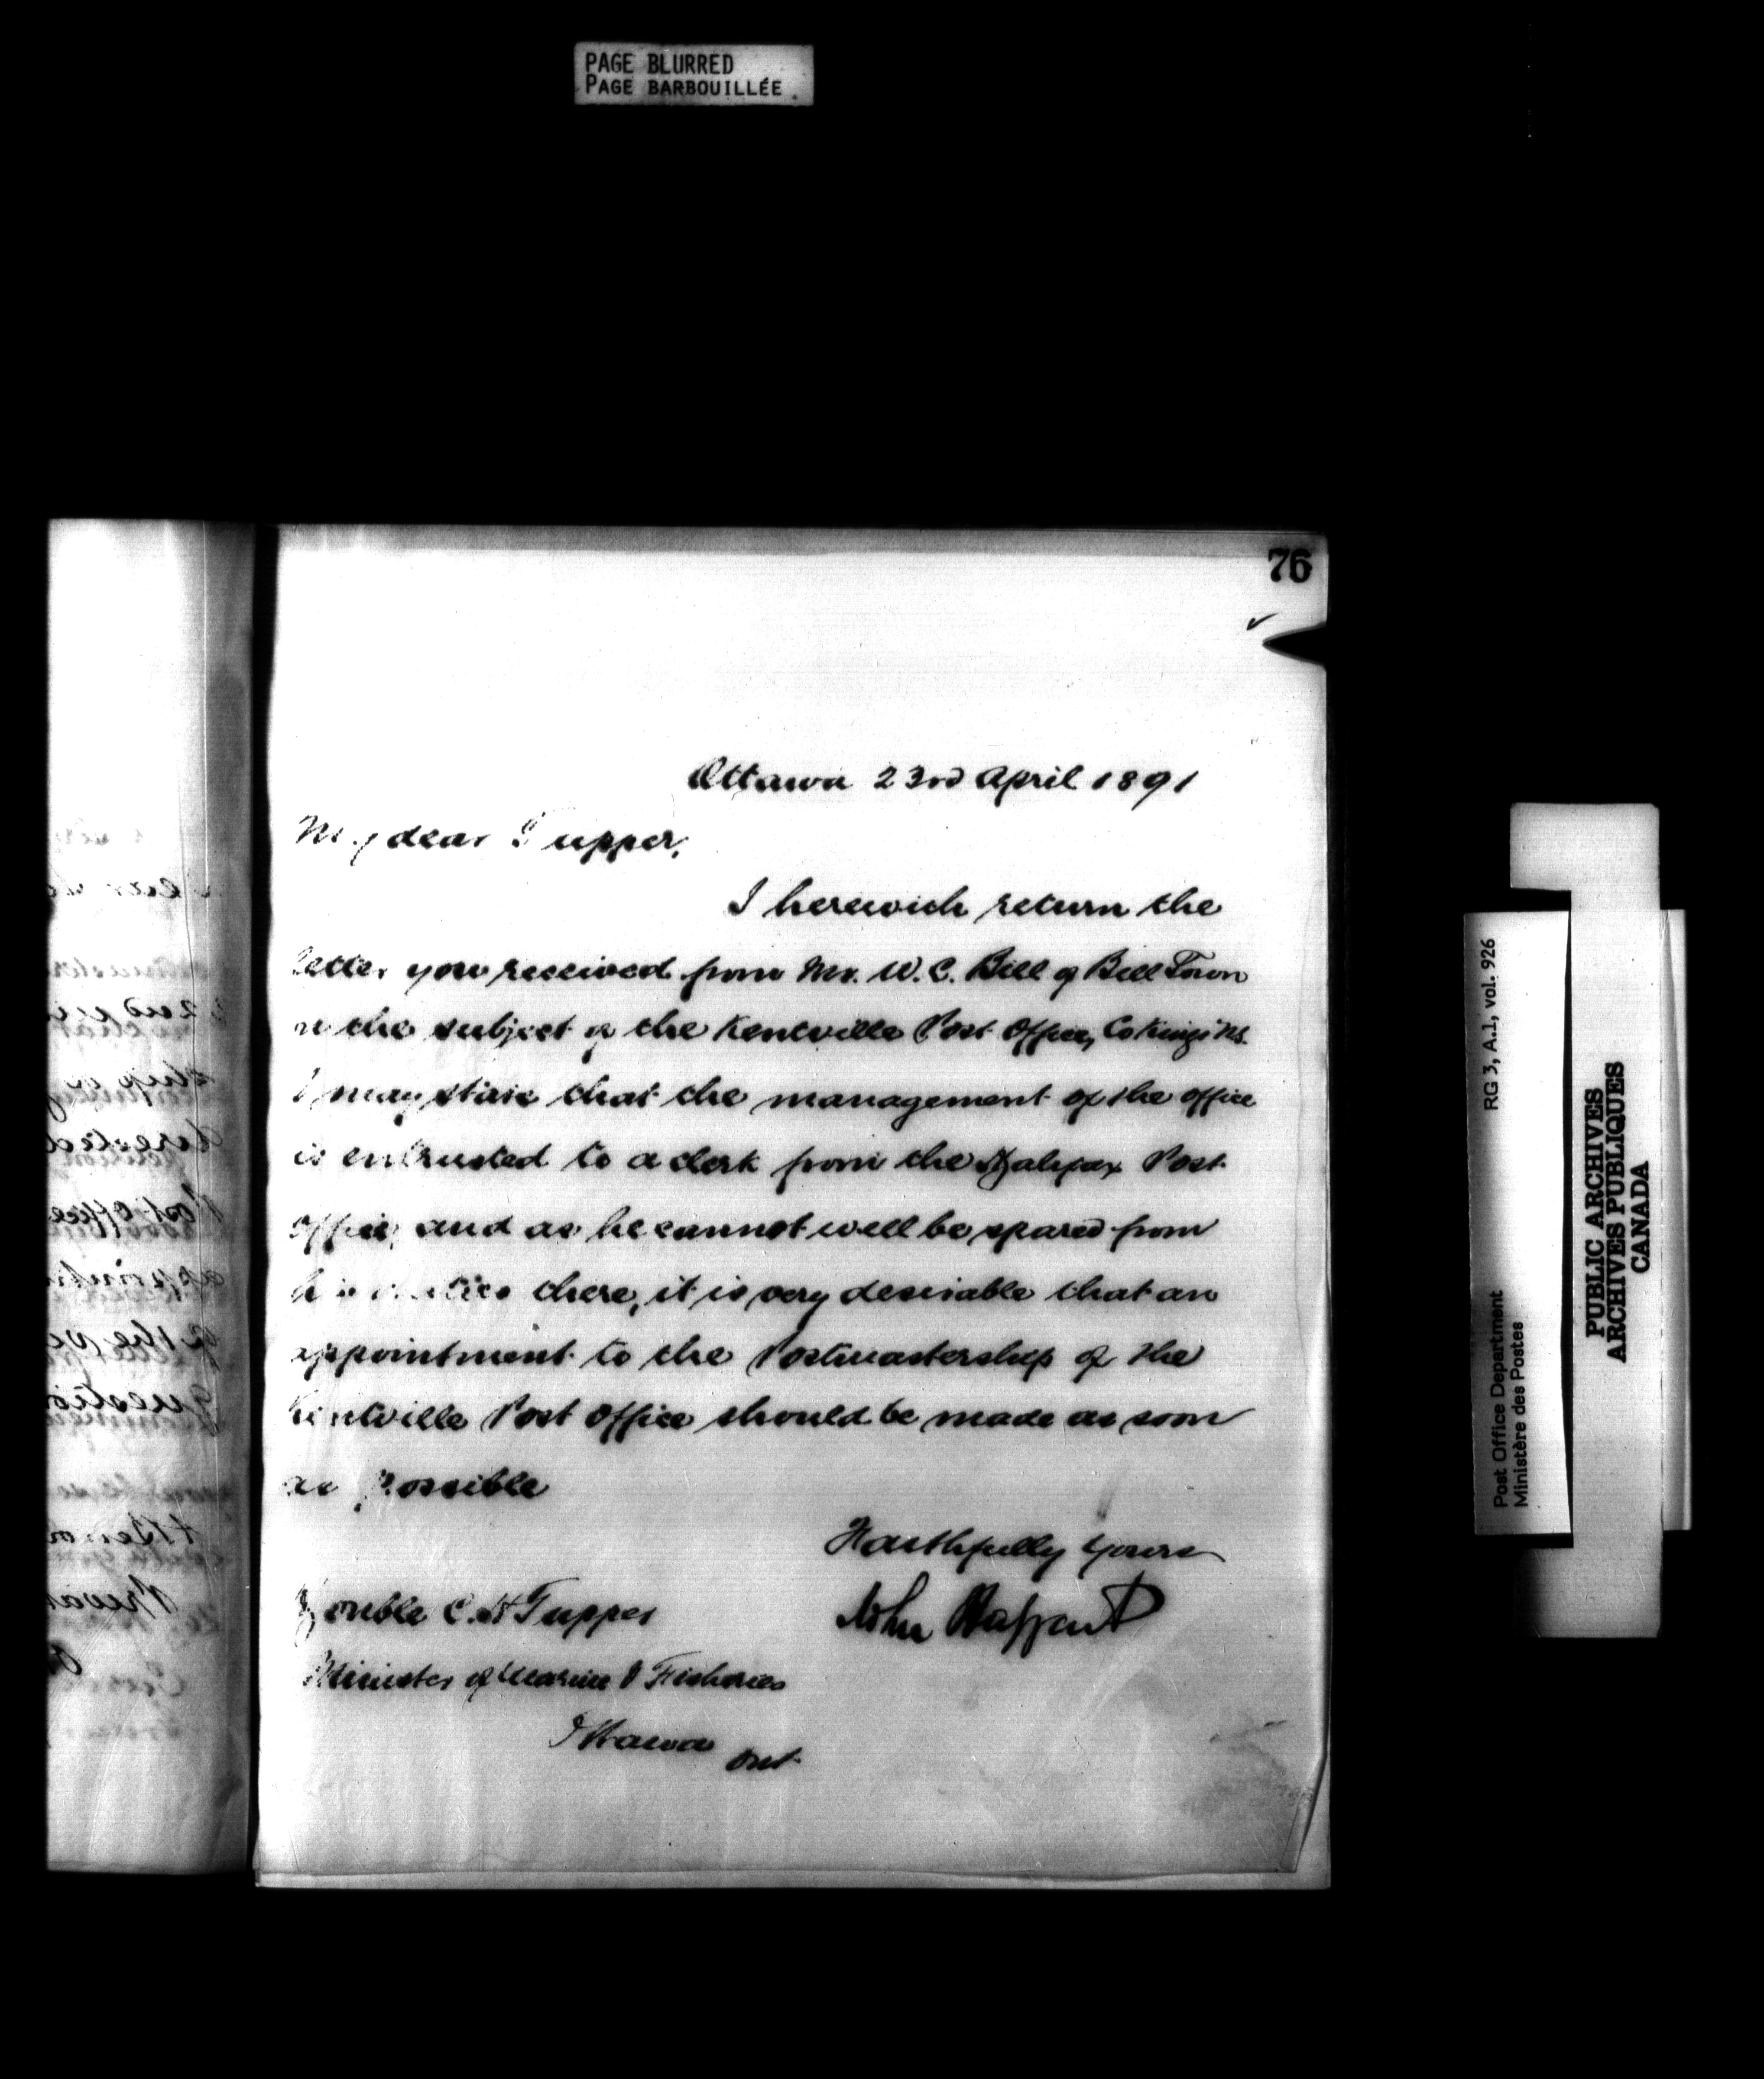 PAGE BLURRED
PAGE BARBOUILLÉE
76
Ottawa 23rd April 1891
My dear Tupper,
I herewith return the
letter you received from Mr. W. C. Bill of Bill Town
on the subject of the Kentville Post Office, Co Kings N.S.
I may state that the management of the office
is entrusted to a clerk from the Halifax Post
Office, and as he cannot well be spared from
his duties there, it is very desirable that an
appointment to the Postmastership of the
Kentville Post Office should be made as soon
as possible
Faithfully yours
John Haggart
Honble C. H Tupper
Minister of Marine & Fisheries
Ottawa
Ont
RG 3, A.1, vol. 926
Post Office Department
Ministère des Postes
PUBLIC ARCHIVES
ARCHIVES PUBLIQUES
CANADA